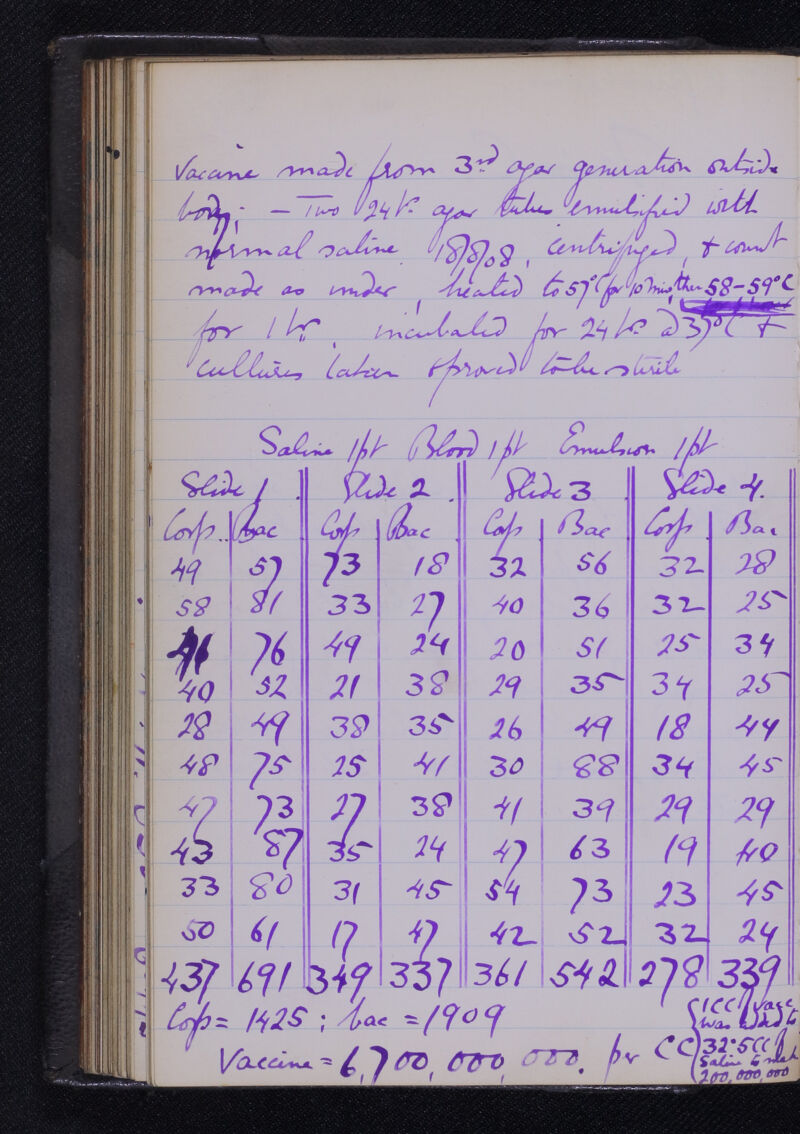 Vaccine made from 3rd agar generation outside
body; - Two 24 hr. agar tubes emulsified with
normal saline 18/8/08, centrifuged, & count
made as under, heated to 57°C for 10 mins, then 58-59°C
for 1 hr, incubated for 24 hrs @ 37°C &
cultures taken & proved to be sterile
Saline 1pt Blood 1pt Emulsion 1pt
Slide 1 Slide 2 Slide 3 Slide 4.
Corp. Bac Corp Bac Corp Bac Corp Bac
49 57 73 18 32 56 32 28
58 81 33 27 40 36 32 25
41 76 49 24 20 51 25 34
40 52 21 38 29 35 34 25
28 49 38 35 26 49 18 44
48 75 25 41 30 88 34 45
47 73 27 38 41 39 29 29
43 87 35 24 47 63 19 40
33 80 31 45 54 73 23 45
50 61 17 47 42 52 32 24
437 691 349 337 361 542 278 339
Corp = 1425 ; bac = 1909
Vaccine = 6,700,000,000. per CC
1CC of vacc
was added to
32.5CC of
Saline to mak
200,000,000